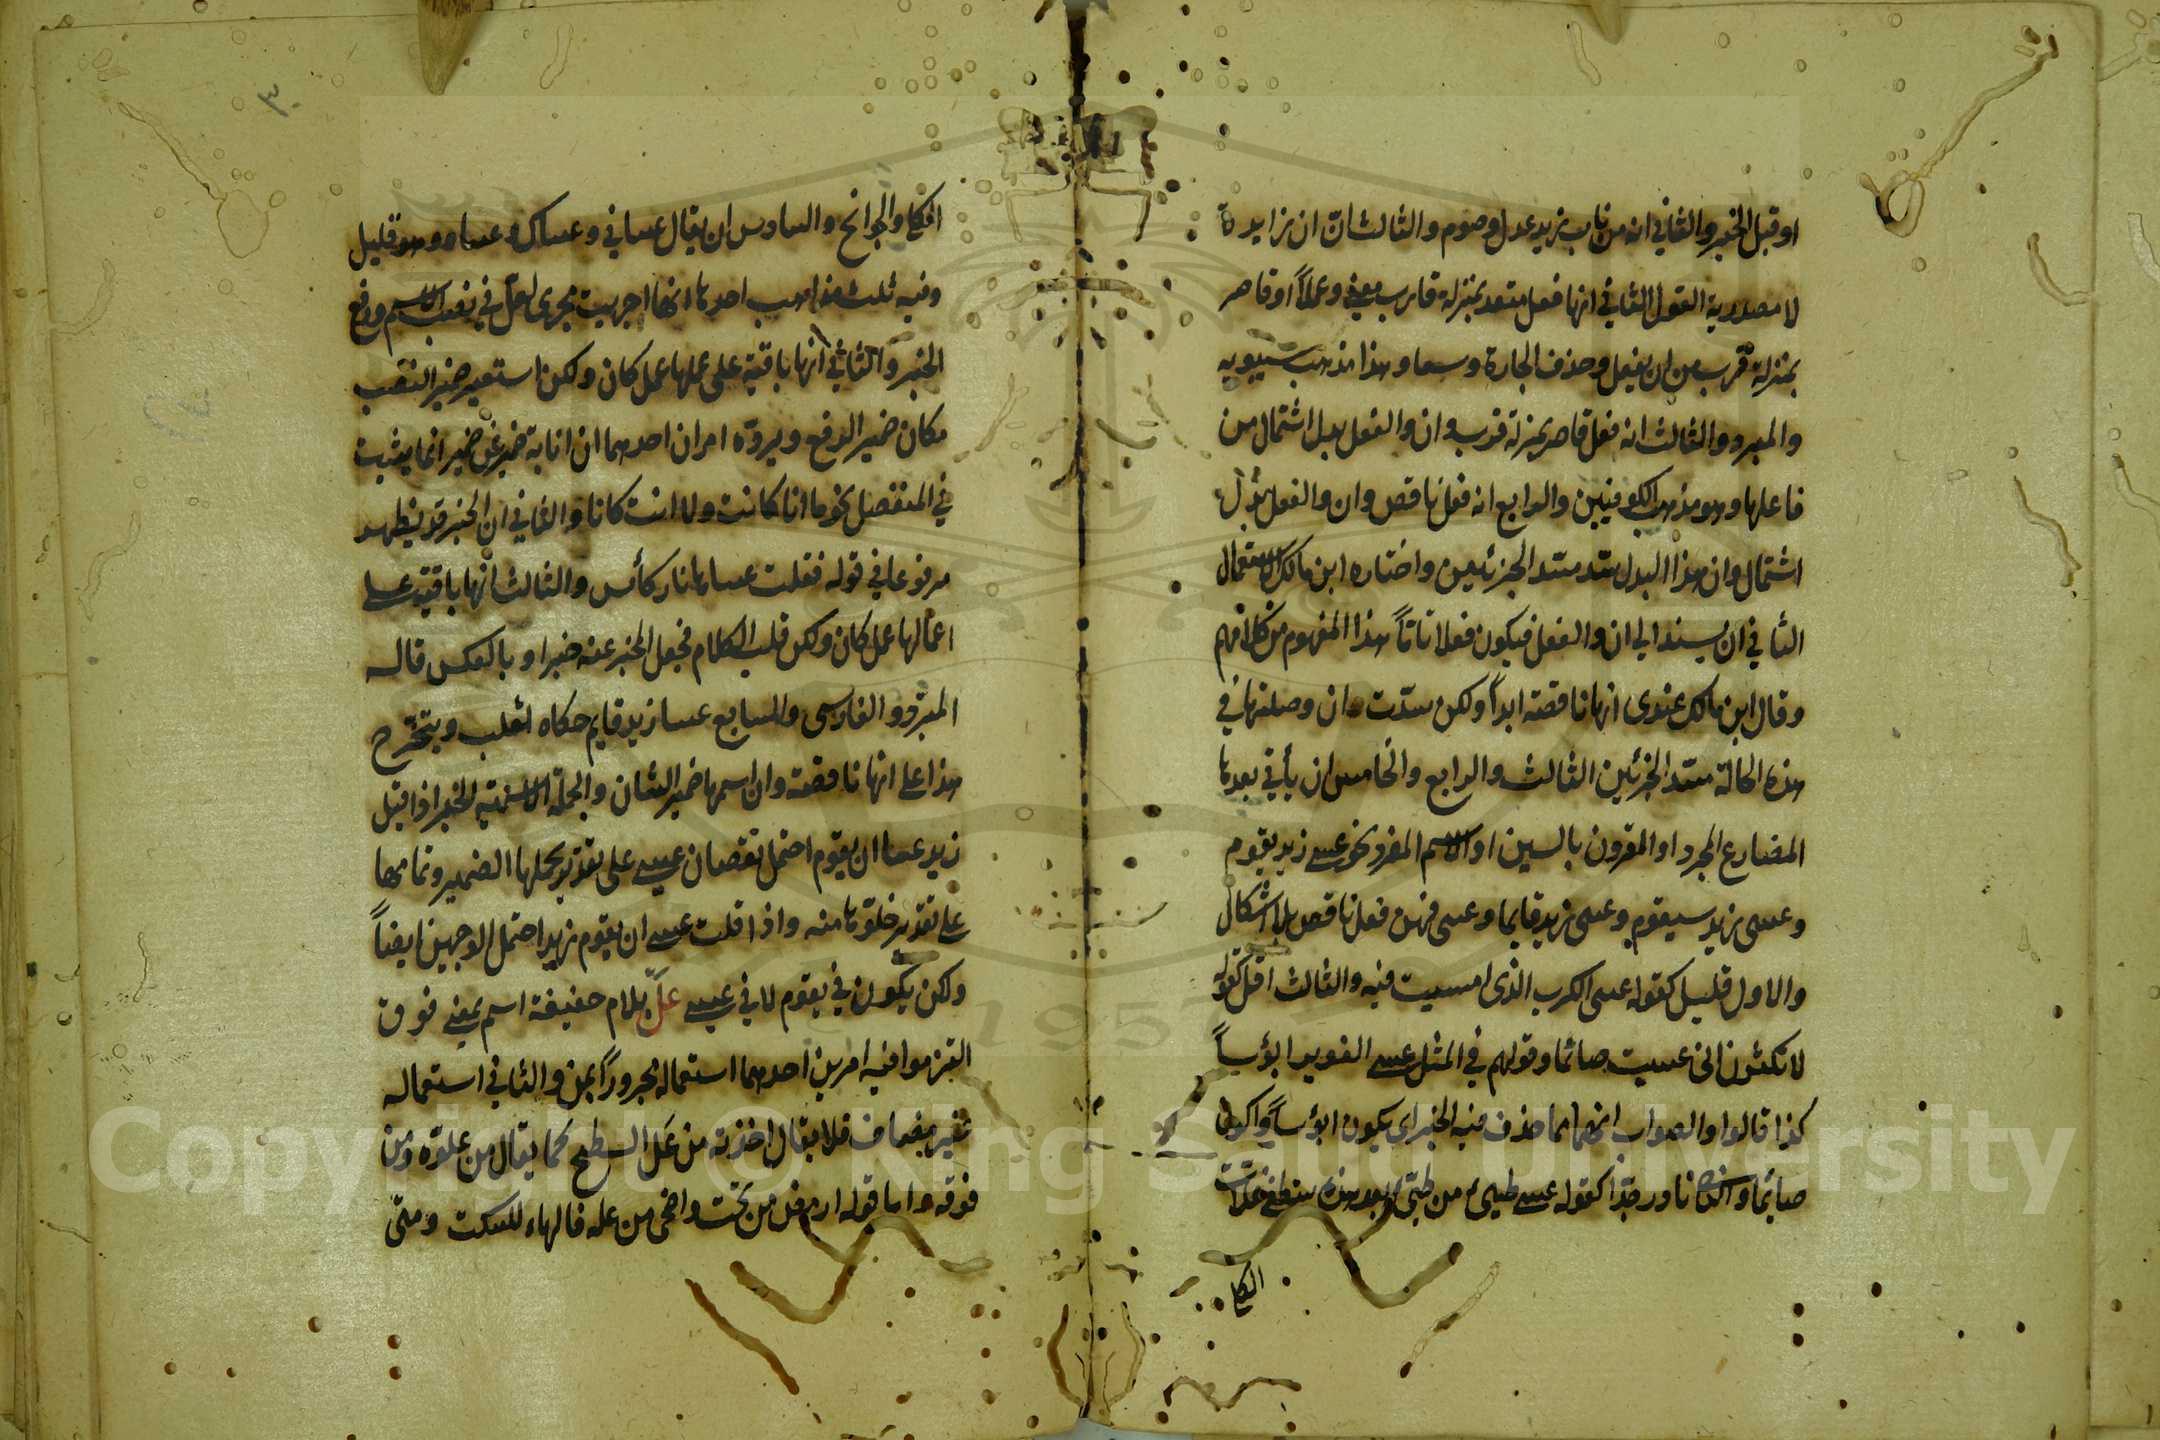 او قبل الخبر والثاني انه من باب زيد عدل وصوم والثالث ان ان زايدة
لا مصدرية القول الثاني انها فعل متعد بمنزلة قارب معنى وعملاً او قاصر
بمنزلة قرب من ان يفعل وحذف الجار توسعا وهذا مذهب سيبويه
والمبرد والثالث انه فعل قاصر بمنزلة قرب وان والفعل بدل اشتمال من
فاعلها وهو مذهب الكوفيين والرابع انه فعل ناقص وان والفعل بدل
اشتمال وان هذا البدل سد مسد الجزئين واختاره ابن مالك الاستعمال
الثاني ان يسند الى ان والفعل فيكون فعلا تاماً هذا المفهوم من كلامهم
وقال ابن مالك عندى انها ناقصة ابداً ولكن سدّت ان وصلتها في
هذه الحالة مسد الجزئين الثالث والرابع والخامس ان يأتي بعدها
المضارع المجرد او المقرون بالسين او الاسم المفرد نحو عسى زيد يقوم
وعسى زيد سيقوم وعسى زيد قايما وعسى فيهن فعل ناقص بلا اشكال
والاول قليل كقوله عسى الكرب الذى امسيت فيه والثالث اقل كقوله
لا تكثرن انى عسيت صائما وقولهم في المثل عسى الغوير ابؤساً
كذا قالوا والصواب انهما مما حذف فيه الخبر اى يكون ابؤساً واكون
صائما و الثاني نادر جدا كقوله عسى طيىء من طيّىء بعد هذه ستطفئ غلات
الكلى
الكلى والجوانح والسادس ان يقال عساني وعساك وعساه وهو قليل
وفيه ثلث مذاهب احدها انها اجريت مجرى لعلّ في نصب الاسم ورفع
الخبر والثاني انها باقية على عملها عمل كان ولكن استعير ضمير النصب
مكان ضمير الرفع ويردّه امران احدهما ان انابة ضمير عن ضمير انما يثبت
في المنفصل نحو ما انا كانت ولا انت كانا والثاني ان الخبر قد يظهر
مرفوعا في قوله فقلت عساها نار كأس والثالث انها باقية على
اعمالها عمل كان ولكن قلب الكلام فجعل المخبر عنه خبرا وبالعكس قاله
المبرّد والفارسى والسابع عسا زيد قايم حكاه ثعلب ويتخرّج
هذا على انها ناقصة وان اسمها ضمير الشان والجملة الاسمية الخبر اذا قيل
زيد عسا ان يقوم احتمل نقصان عسى على تقدير تحملها الضمير وتمامها
على تقدير خلوها منه واذا قلت عسى ان يقوم زيد احتمل الوجهين ايضاً
ولكن يكون في يقوم لا في عسى علّ بلام خفيفة اسم بمعنى فوق
التزموا فيه امرين احدهما استعماله مجروراً بمن والثاني استعماله
غير مضاف فلا يقال اخذته من عَل السطح كما يقال من علوّه ومن
فوقه واما قوله ارمض من تحت واضحى من عله فالهاء للسكت ومتى